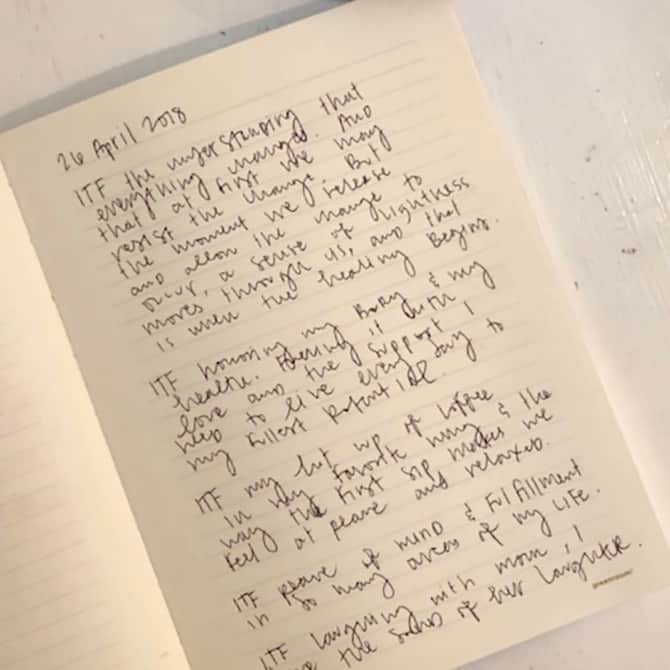 26 April 2018
ITF the understanding that
everything changes. And
that at first we may
resist the change. But
the moment we release
and allow the change to
occur, a sense of lightness
moves through us, and that
is when the healing begins.
ITF honoring my body & my
health. it with
love and the support I
need to live every day to
my fullest potential.
ITF my hot cup of coffee
in my favorite mug & the
way the first sip makes me
feel at peace and relaxed.
ITF peace of mind & fulfillment
in so many areas of my life.
ITF laughing with mom, I
the sound of her laughter.